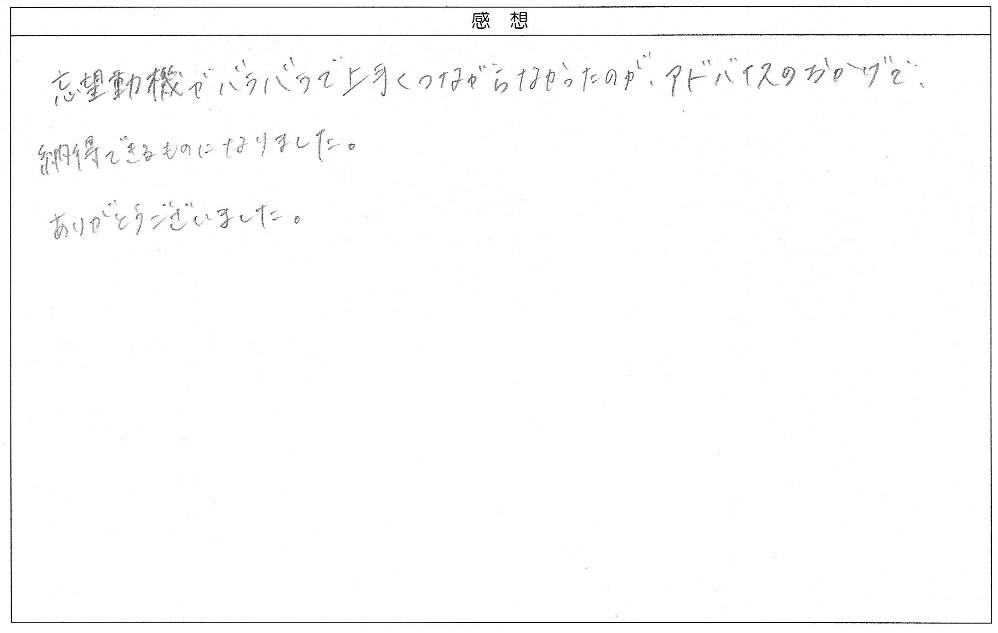 感想
志望動機がバラバラで上手くつながらなかったのが、アドバイスのおかげで、
納得できるものになりました。
ありがとうございました。